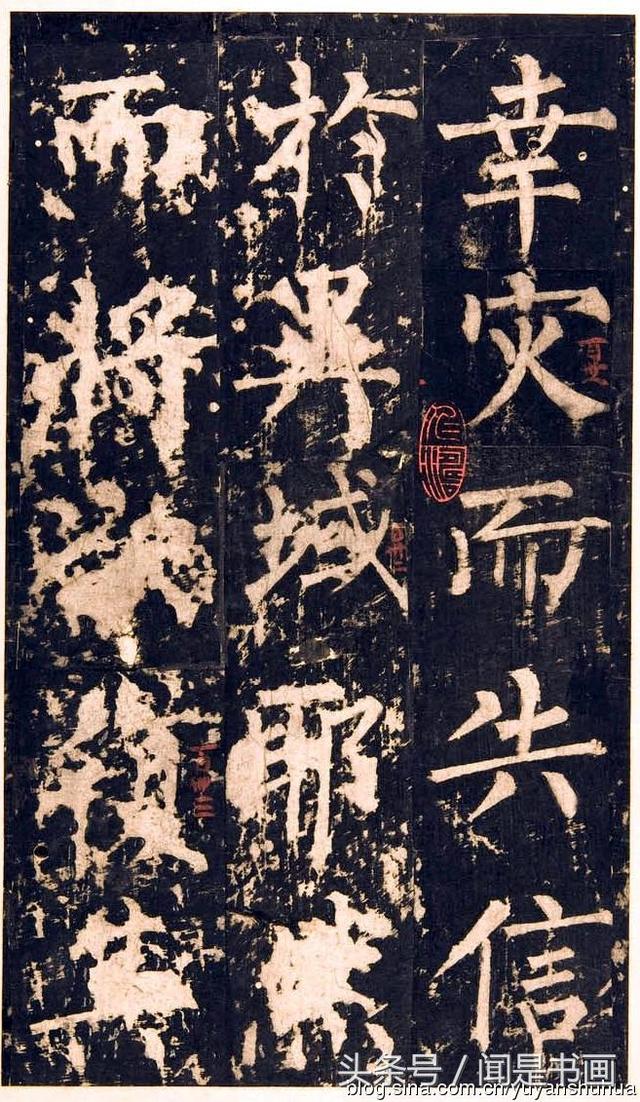 幸灾而失信
於異域耶然
而將
头条号 / 闻是书画
blog.sina.com.cn/yuyanshuhua